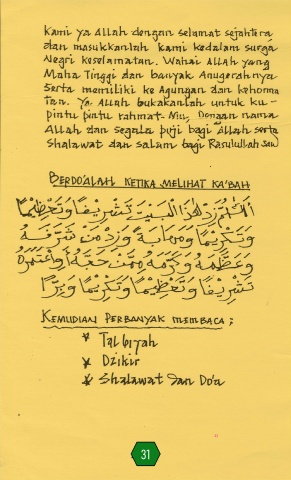 Kami ya Allah dengan selamat sejahtera
dan masukkanlah kami kedalam surga
Negri keselamatan. Wahai Allah yang
Maha Tinggi dan banyak Anugerahnya
Serta memiliki ke Agungan dan kehorma
tan. Ya Allah bukakanlah untuk ku-
pintu pintu rahmat-Mu, Dengan nama
Allah dan segala puji bagi Allah serta
Shalawat dan salam bagi Rasulullah saw
BERDO'ALAH KETIKA MELIHAT KA'BAH
اَللّٰهُمَّ زِدْ هٰذَا الْبَيْتَ تَشْرِيْفًا وَتَعْظِيْمًا
وَتَكْرِيْمًا وَمَهَابَةً وَزِدْ مَنْ شَرَّفَهُ
وَعَظَّمَهُ وَكَرَّمَهُ مِمَّنْ حَجَّهُ اَوِاعْتَمَرَهُ
تَشْرِيْفًا وَتَعْظِيْمًا وَتَكْرِيْمًا وَبِرًّا
KEMUDIAN PERBANYAK MEMBACA :
* Talbiyah
* Dzikir
* Shalawat dan Do'a
31